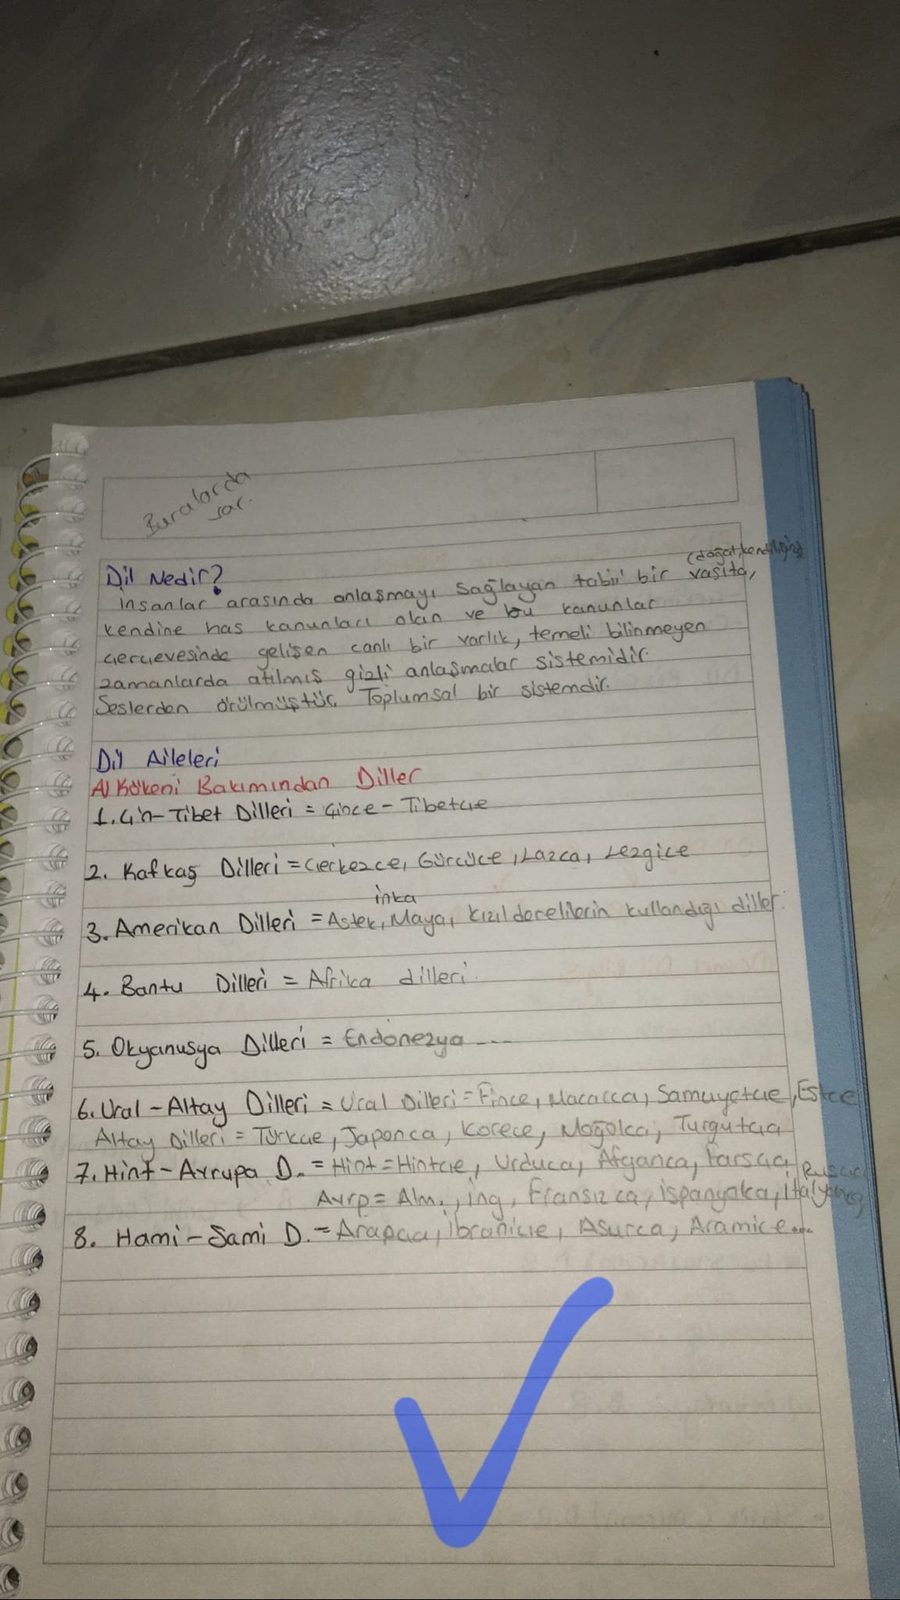 Buralarda
var.
(doğal, kendiliğin)
Dil Nedir?
İnsanlar arasında anlaşmayı sağlayan tabii bir vasıta,
kendine has kanunları olan ve bu kanunlar
çerçevesinde gelişen canlı bir varlık, temeli bilinmeyen
zamanlarda atılmış gizli anlaşmalar sistemidir.
Seslerden örülmüştür. Toplumsal bir sistemdir.
Dil Aileleri
A) Kökeni Bakımından Diller
1. Çin-Tibet Dilleri = Çince - Tibetçe
2. Kafkas Dilleri = Çerkezce, Gürcüce, Lazca, Lezgice
inka
3. Amerikan Dilleri = Astek, Maya, kızılderelilerin kullandığı diller.
4. Bantu Dilleri = Afrika dilleri.
5. Okyanusya Dilleri = Endonezya ---
6. Ural-Altay Dilleri = Ural Dilleri = Fince, Macarca, Samuyetçe, Estce
Altay Dilleri = Türkçe, Japonca, Korece, Moğolca, Turgutça
7. Hint-Avrupa D. = Hint = Hintçe, Urduca, Afganca, Farsça, Rusça
Avrp = Alm., ing, Fransızca, İspanyolca, İtalyanca
8. Hami-Sami D. = Arapça, İbranice, Asurca, Aramice...